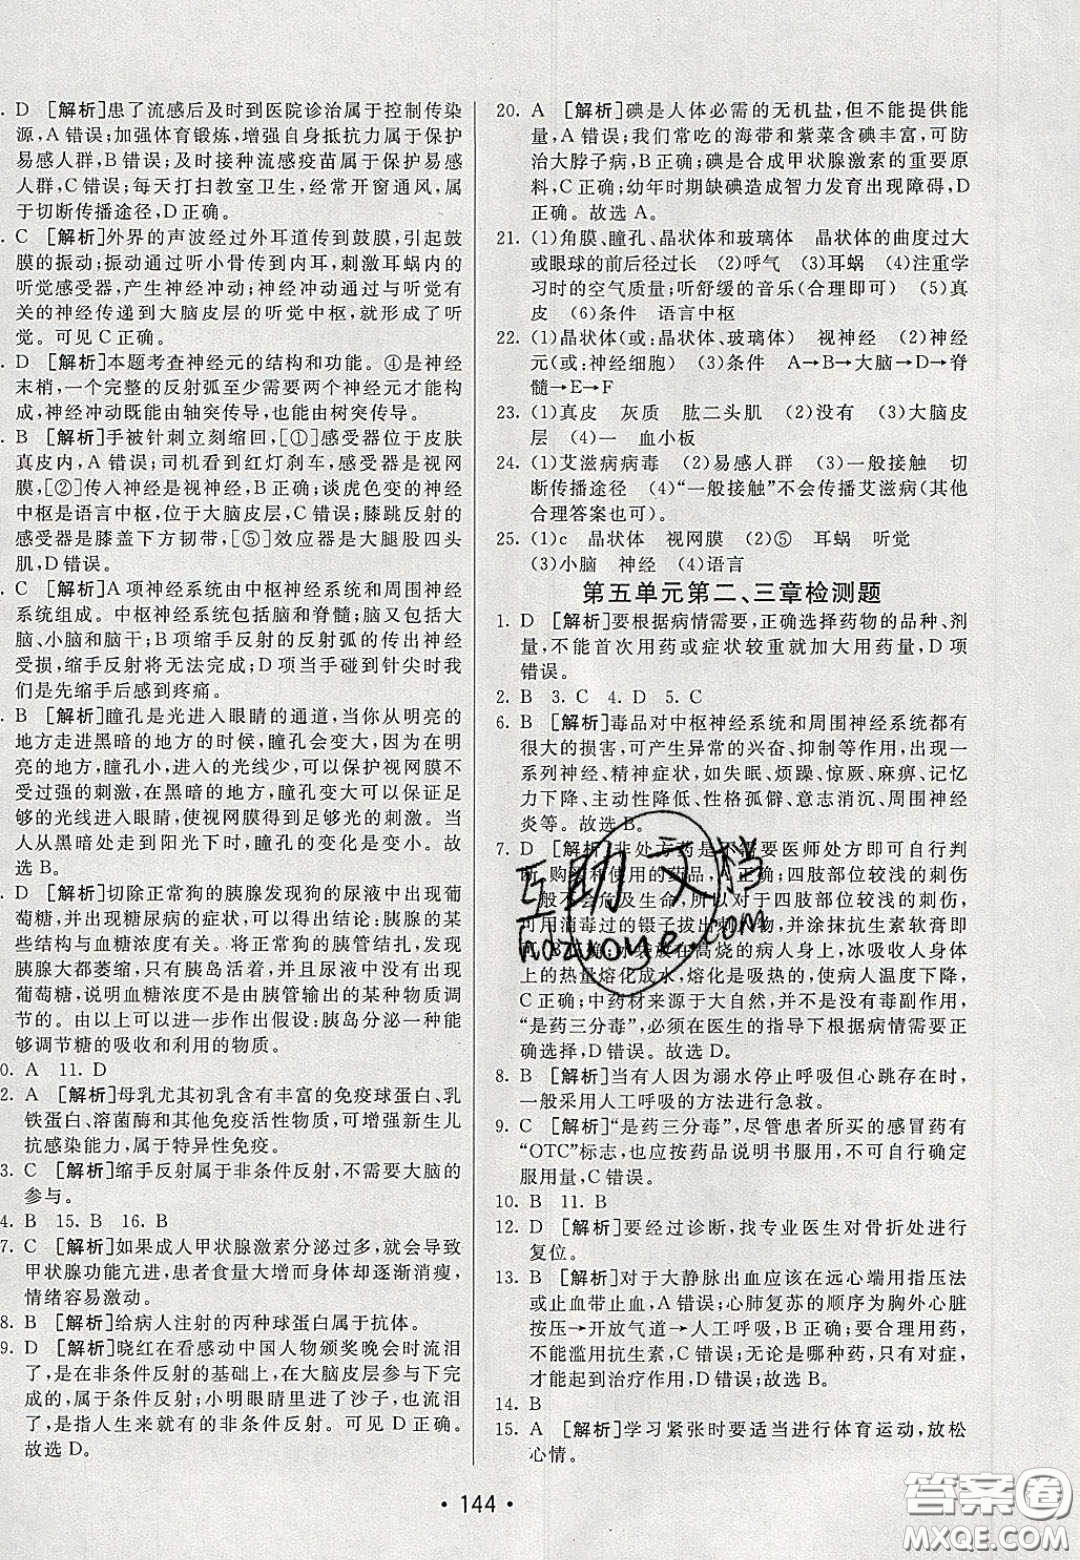 . D [解析]患了流感后及时到医院诊治属于控制传染
源,A错误;加强体育锻炼,增强自身抵抗力属于保护
易感人群,B错误;及时接种流感疫苗属于保护易感
人群,C错误;每天打扫教室卫生,经常开窗通风,属
于切断传播途径,D正确。
. C [解析]外界的声波经过外耳道传到鼓膜,引起鼓
膜的振动;振动通过听小骨传到内耳,刺激耳蜗内的
听觉感受器,产生神经冲动;神经冲动通过与听觉有
关的神经传递到大脑皮层的听觉中枢,就形成了听
觉。可见C正确。
. D [解析]本题考查神经元的结构和功能。④是神经
末梢,一个完整的反射弧至少需要两个神经元才能构
成,神经冲动既能由轴突传导,也能由树突传导。
. B [解析]手被针刺立刻缩回,[①]感受器位于皮肤
真皮内,A错误;司机看到红灯刹车,感受器是视网
膜,[②]传入神经是视神经,B正确;谈虎色变的神经
中枢是语言中枢,位于大脑皮层,C错误;膝跳反射的
感受器位于膝盖下方韧带,[⑤]效应器是大腿股四头
肌,D错误。
. C [解析]A项神经系统由中枢神经系统和周围神经
系统组成。中枢神经系统包括脑和脊髓;脑包括大
脑、小脑和脑干;B项缩手反射的反射弧的神经中枢
受损,缩手反射将无法完成;D项当手碰到针尖时我
们是先缩手后感到疼痛。
. B [解析]瞳孔是光进入眼睛的通道,当你从明亮的
地方走进黑暗的地方的时候,瞳孔会变大,因为在明
亮的地方,瞳孔小,进入的光线少,可以保护视网膜不
受过强的刺激,在黑暗的地方,瞳孔大可以保证足够
的光线进入眼睛,使视网膜得到足够光的刺激。当
人从黑暗处走到阳光下时,瞳孔的变化是变小。故
选B。
. D [解析]切除正常狗的胰腺发现狗的尿液中出现葡
萄糖,并出现糖尿病的症状,可以得出结论:胰腺的某
些结构与血糖浓度有关。将正常狗的胰管结扎,发现
胰腺大都萎缩,只有胰岛活着,并且尿液中没有出现
葡萄糖,说明血糖浓度不是由胰管输出的某种物质调
节的。由以上可以进一步作出假设:胰岛分泌一种能
够调节糖的吸收和利用的物质。
0. A 11. D
2. A [解析]母乳尤其初乳含有丰富的免疫球蛋白、乳
铁蛋白、溶菌酶和其他免疫活性物质,可增强新生儿
抗感染能力,属于特异性免疫。
3. C [解析]缩手反射属于非条件反射,不需要大脑的
参与。
4. B 15. B 16. B
7. C [解析]如果成人甲状腺激素分泌过多,就会引起
甲状腺功能亢进,患者食量大增但身体却逐渐消瘦,
情绪容易激动。
8. B [解析]给病人注射的丙种球蛋白属于抗体。
9. D [解析]晓红在看感动中国人物颁奖晚会时流泪
了,是在非条件反射的基础上,在大脑皮层参与下完
成的,属于条件反射;小明眼睛里进了沙子,也流泪
了,是指人生来就有的非条件反射。可见D正确。
故选D。
20. A [解析]碘是人体必需的无机盐,但不能提供能
量,A错误;我们常吃的海带和紫菜含碘丰富,可防
治大脖子病,B正确;碘是合成甲状腺激素的重要原
料,C正确;幼年时期缺碘造成智力发育出现障碍,D
正确。故选A。
21. (1)角膜、瞳孔、晶状体和玻璃体 晶状体的曲度过大
或眼球的前后径过长 (2)呼气 (3)耳蜗 (4)注重学
习时的空气质量;听舒缓的音乐(合理即可) (5)真
皮 (6)条件 语言中枢
22. (1)晶状体(或:晶状体、玻璃体) 视神经 (2)神经
元(或:神经细胞) (3)条件 A→B→大脑→D→脊
髓→E→F
23. (1)真皮 灰质 肱二头肌 (2)没有 (3)大脑皮
层 (4)一 血小板
24. (1)艾滋病病毒 (2)易感人群 (3)一般接触 切
断传播途径 (4)“一般接触”不会传播艾滋病(其他
合理答案也可)。
25. (1)c 晶状体 视网膜 (2)⑤ 耳蜗 听觉
(3)小脑 神经 (4)语言
第五单元第二、三章检测题
1. D [解析]要根据病情需要,正确选择药物的品种、剂
量,不能首次用药或症状较重就加大用药量,D项
错误。
2. B 3. C 4. D 5. C
6. B [解析]毒品对中枢神经系统和周围神经系统都有
很大的损害,可产生异常的兴奋、抑制等作用,出现一
系列神经、精神症状,如失眠、烦躁、惊厥、麻痹、记忆
力下降、主动性降低、性格孤僻、意志消沉、周围神经
炎等。故选B。
7. D [解析]非处方药是不需要医师处方即可自行判
断、购买和使用的药品,A正确;四肢部位较浅的刺伤,
一般不会危及生命,所以对于四肢部位较浅的刺伤,
可用消毒过的镊子拔出刺入物,并涂抹抗生素软膏即
可,B正确;冰袋放在高烧的病人身上,冰吸收人身体
上的热量熔化成水,熔化是吸热的,使病人温度下降,
C正确;中药材来源于大自然,并不是没有毒副作用,
“是药三分毒”,必须在医生的指导下根据病情需要正
确选择,D错误。故选D。
8. B [解析]当有人因为溺水停止呼吸但心跳存在时,
一般采用人工呼吸的方法进行急救。
9. C [解析]“是药三分毒”,尽管患者所买的感冒药有
“OTC”标志,也应按药品说明书服用,不能自行确定
服用量,C错误。
10. B 11. B
12. D [解析]要经过诊断,找专业医生对骨折处进行
复位。
13. B [解析]对于大静脉出血应该在远心端用指压法
或止血带止血,A错误;心肺复苏的顺序为胸外心脏
按压→开放气道→人工呼吸,B正确;要合理用药,
不能滥用抗生素,C错误;无论是哪种药,只有对症,
才能起到治疗作用,D错误。故选B。
14. B
15. A [解析]学习紧张时要适当进行体育运动,放松
心情。
• 144 •
互助文档
hdzuoye.com
答案圈
MXQE.COM